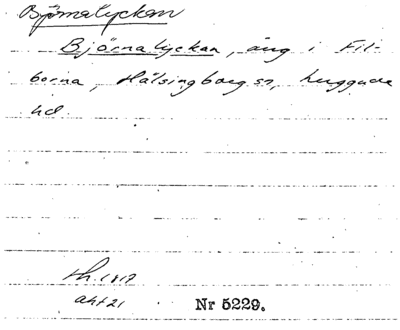 Björnalyckan
Björnalyckan, äng i Fil-
borna, Hälsingborg sn, Luggude
hd
Lh. 1817
akt 21 Nr 5229.